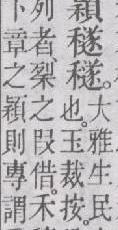 穎穟穟。
大雅生民
也。玉裁按。
列者之叚借。禾
下章之穎則專謂